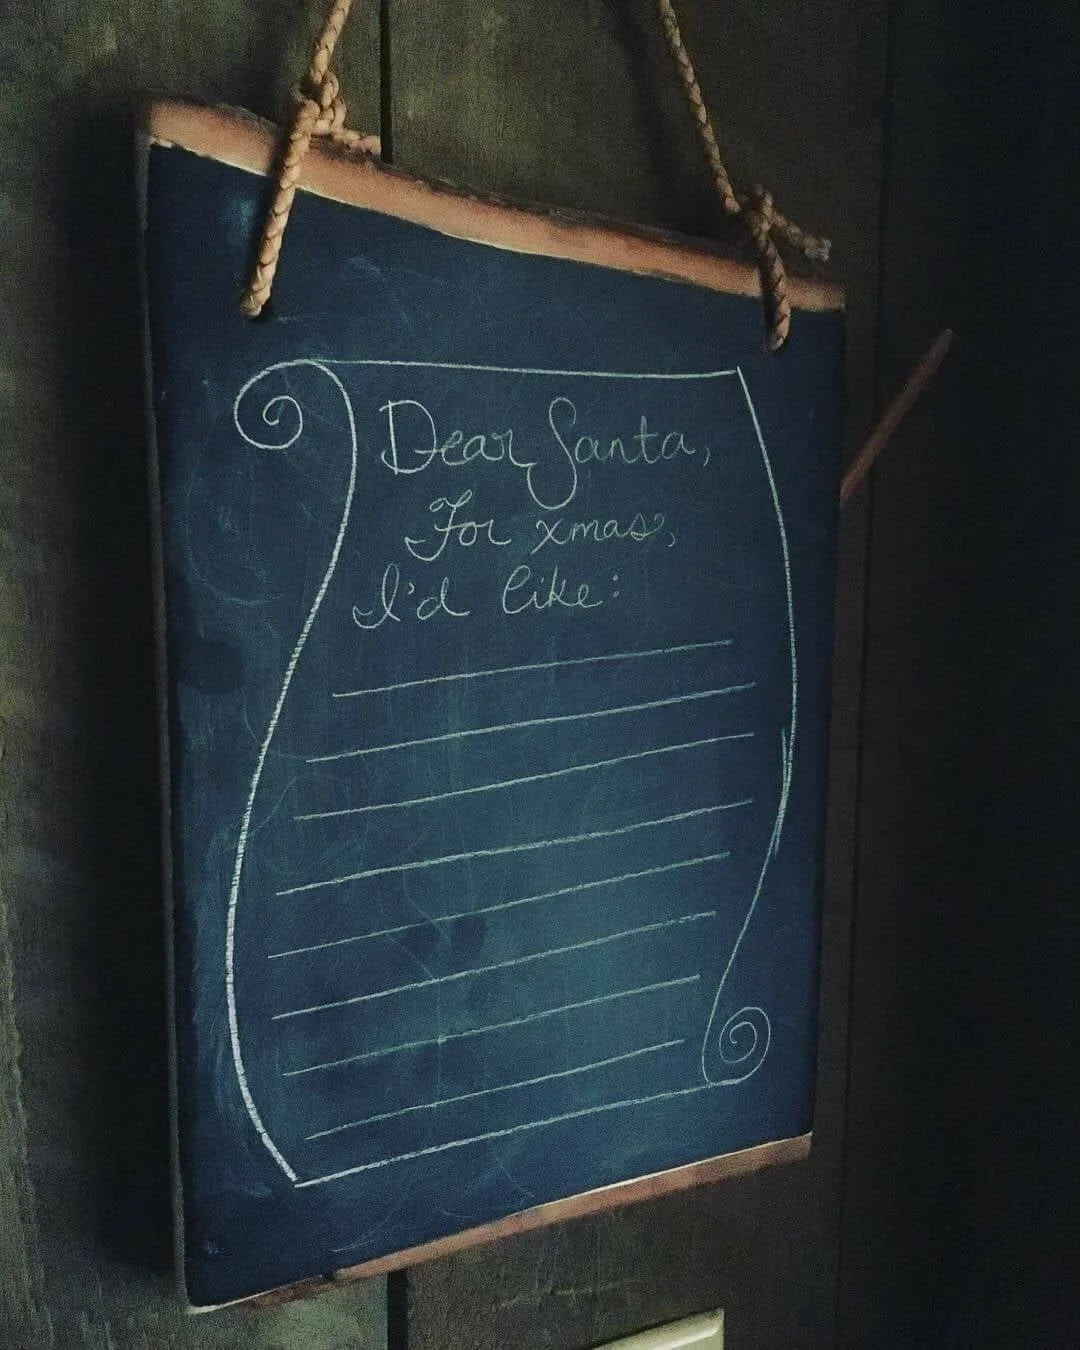 Dear Santa,
For xmas,
I'd like: